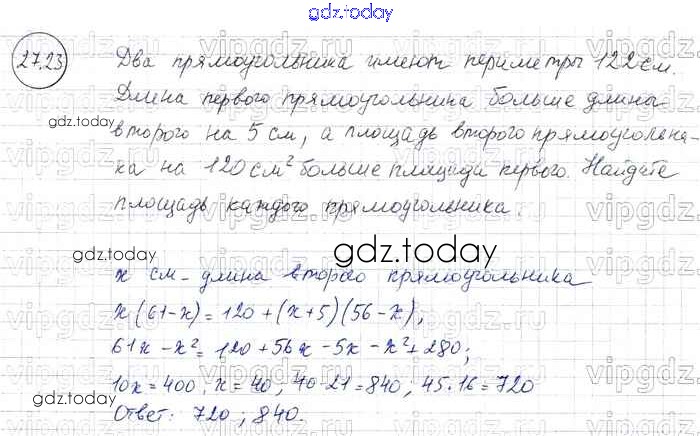 gdz.today
27.23
Два прямоугольника имеют периметры 122 см.
Длина первого прямоугольника больше длины
gdz.today
второго на 5 см, а площадь второго прямоугольни-
ка на 120 см² больше площади первого. Найдите
площадь каждого прямоугольника.
gdz.today
x см - длина второго прямоугольника
x(61-x)=120+(x+5)(56-x);
61x-x²=120+56x-5x-x²+280;
10x=400; x=40; 40·21=840; 45·16=720
gdz.today
Ответ: 720; 840.
gdz.today
vipgdz.ru